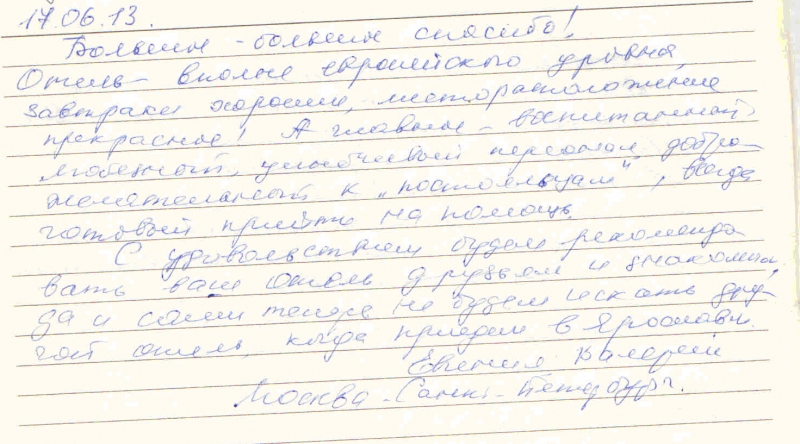 17.06.13.
Большое-большое спасибо!
Отель - вполне европейского уровня,
завтраки хорошие, месторасположение
прекрасное! А главное - воспитанный,
любезный, улыбчивый персонал, добро-
желательный к „постояльцам", всегда
готовый прийти на помощь.
С удовольствием будем рекоменда
вать ваш отель друзьям и знакомым,
да и сами теперь не будем искать дру-
гой отель, когда приедем в Ярославль.
Евгения, Валерий
Москва - Санкт-Петербург.